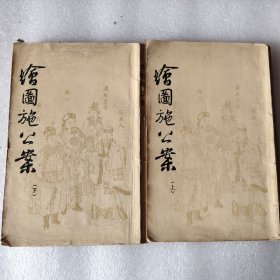 繪圖施公案(下)
繪圖施公案(上)